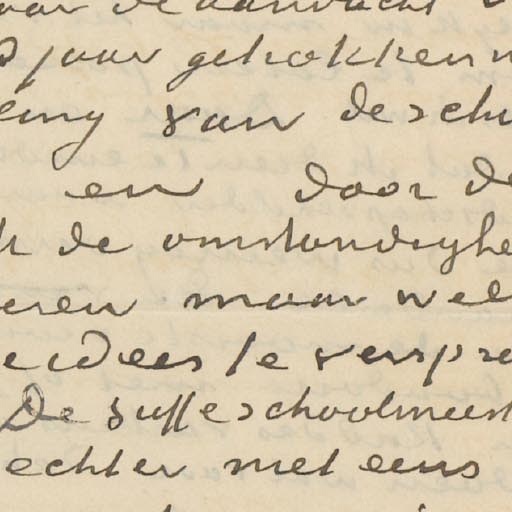 de aandacht
jaar getrokken
van de schi
en door de
de omstandighe
eren maar wel
ideeen te verspre
De suffe schoolmeest
echter niet eens